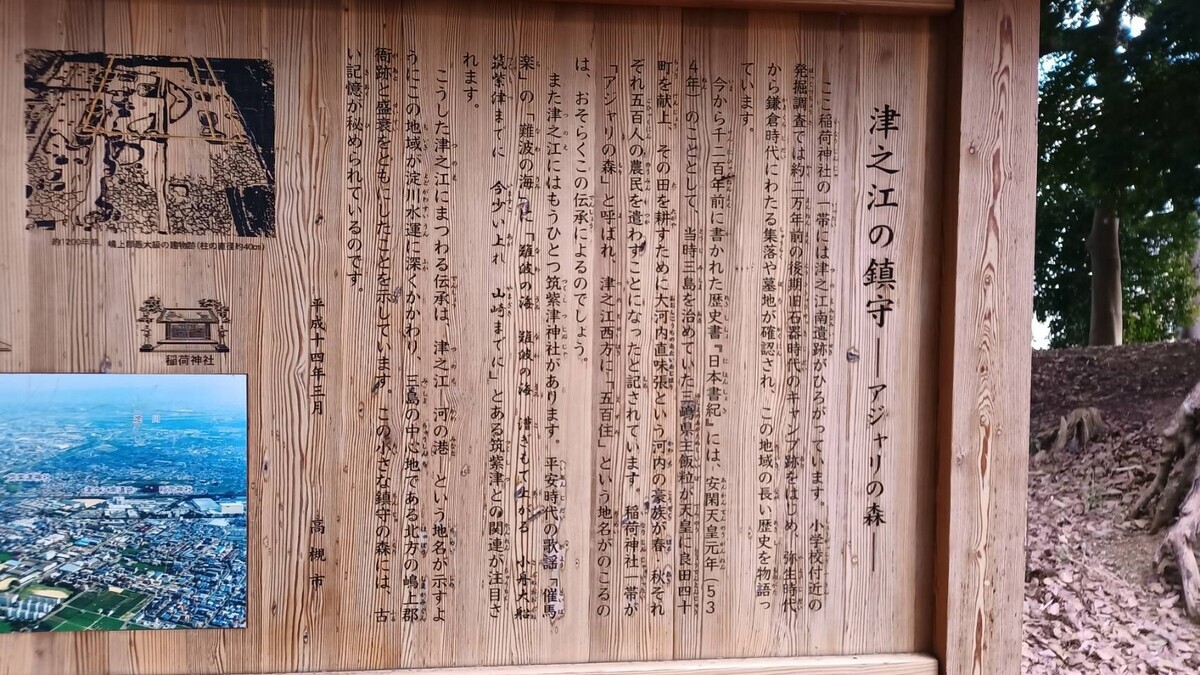 津之江の鎮守―アジャリの森―
ここ稲荷神社の一帯には津之江南遺跡がひろがっています。小学校付近の
発掘調査では約二万年前の後期旧石器時代のキャンプ跡をはじめ、弥生時代
から鎌倉時代にわたる集落や墓地が確認され、この地域の長い歴史を物語っ
ています。
今から千二百年前に書かれた歴史書『日本書紀』には、安閑天皇元年(53
4年)のこととして、当時三島を治めていた三嶋県主飯粒が天皇に良田四十
町を献上、その田を耕すために大河内直味張という河内の豪族が春・秋それ
ぞれ五百人の農民を遣わすことになったと記されています。稲荷神社一帯が
「アジャリの森」と呼ばれ、津之江西方に「五百住」という地名がのこるの
は、おそらくこの伝承によるのでしょう。
また津之江にはもうひとつ筑紫津神社があります。平安時代の歌謡「催馬
楽」の「難波の海」に「難波の海 難波の海 漕ぎもて上がる 小舟大船
筑紫津までに 今少い上れ 山崎までに」とある筑紫津との関連が注目さ
れます。
こうした津之江にまつわる伝承は、津之江―河の港―という地名が示すよ
うにこの地域が淀川水運に深くかかわり、三島の中心地である北方の嶋上郡
衙跡と盛衰をともにしたことを示しています。この小さな鎮守の森には、古
い記憶が秘められているのです。
平成十四年三月 高槻市
稲荷神社